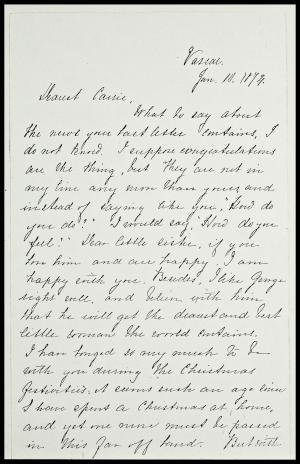 Vassar.
Jan. 10. 1872.
Dearest Carrie,
What to say about
the news your last letter contains, I
do not know. I suppose congratulations
are the thing, but they are not in
my line any more than yours, and
instead of saying like you, "How do
you do?" I would say, "How do you
feel?" Dear little sister, if you
love him and are happy I am
happy with you. Besides, I like George
right well, and believe with him
that he will get the dearest and best
little woman the world contains.
I have longed so very much to be
with you during the Christmas
festivities, it seems such an age since
I have spent a Christmas at home,
and yet one more must be passed
in this far off land. But with